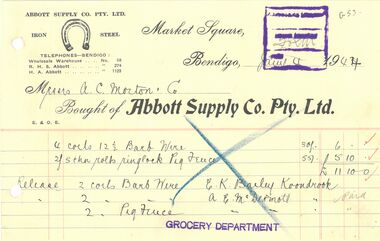 ABBOTT SUPPLY CO. PTY. LTD.
IRON STEEL
TELEPHONES—BENDIGO:
Wholesale Warehouse No. 58
R. H. S. Abbott " 274
H. A. Abbott " 1123
Market Square,
Bendigo, 194
Messrs A. C. Morton & Co
Bought of Abbott Supply Co. Pty. Ltd.
E. & O. E.
4 coils 12½ Barb Wire 6
ringlock Pig Fence 5 10
£ 11 10 0
Release 2 coils Barb Wire E. K. Bailey Koondrook
2 " " A. E. McDermott "
2 Pig Fence
GROCERY DEPARTMENT